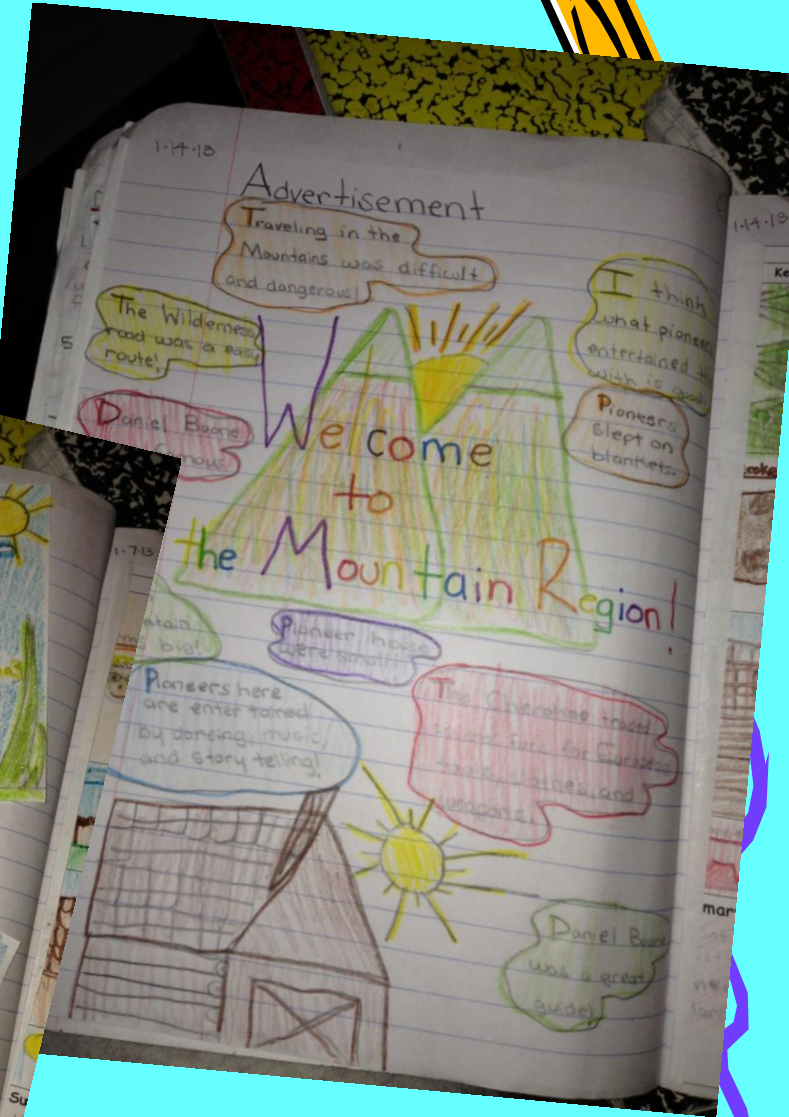 1·14·13
Advertisement
Traveling in the
Mountains was difficult
and dangerous!
The Wilderness
road was a easy
route!
I think
what pioneers
entertained
with is
Daniel Boone
Pioneers
slept on
blankets.
Welcome
to
the Mountain Region!
ntain
big!
Pioneer house
were small!
Pioneers here
are enter tained
by dansing, music,
and story telling!
The Cherokee traded
furs for European
tools, clothes, and
weapons.
Daniel Boone
was a great
guide!
1-14-13
Ke
5
1-7-13
roke
mar
Su